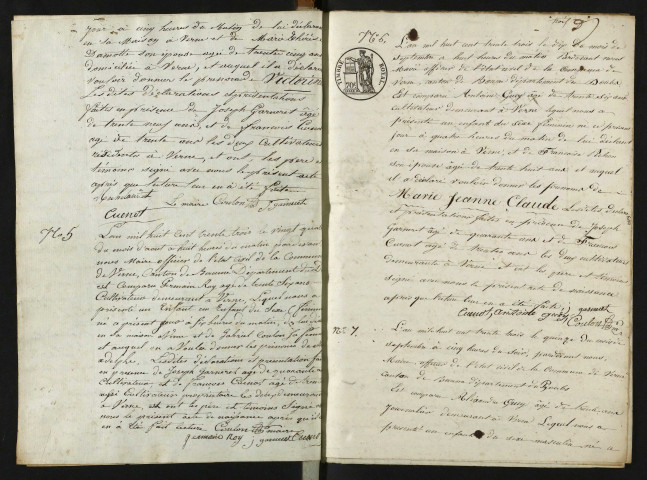 jour à cinq heures du Matin de lui déclarant
en sa Maison à Verne et de Marie thérèse
Damotte son épouse age de trente cinq ans
domiciliée à Verne, et auquel il a déclaré
vouloir donner le prénom de Victorine
Lesdites déclarations et présentations
faites en présence de Joseph Garneret âgé
de trente neuf ans, et de francois Cuenot
agé de trente ans les deux Cultivateurs
résidants à Verne, et ont les père et
témoins signé avec nous le présent acte
après que lecture leur en a été faite
Le maire Coulon
Cuenot
N.º 5
L'an mil huit cent trente trois le vingt
du mois d'aout à huit heures du matin pardevant
nous Maire officier de l'état civil de la Commune
de Verne, Canton de Baume Département du
est Comparu Germain Roy age de trente
Cultivateur demeurant à Verne, Lequel nous a
présenté un Enfant du Sexe féminin
né a présent jour à heures du matin, de lui
en sa maison et de Coulon Sa
et auquel on a Voulu donner les prénoms de
adelphe. Lesdites déclaration et présentation
en présence de Joseph Garneret agé de quarante
Cultivateur et de francois Cuenot agé de
Cultivateurs propriétaire les deux demeurant
a Verne, et ont les père et témoins Signé
nous le présent acte de naissance après qu'il
en à été fait lecture Coulon maire
germain Roy garneret Cuenot
N.º 6.
TIMBRE ROYAL
L'an mil huit cent trente trois le dix du mois de
septembre a huit heures du matin
Maire officier de l'état civil de la Commune de
Verne canton de Baume département du Doubs
Est comparu Antoine Guey âgé de trente six ans
cultivateur demeurant à Verne lequel nous a
présenté un enfant du sexe féminin né ce présent
jour à quatre heures du matin de lui déclarant
en sa maison à Verne, et de Françoise
son épouse âgée de trente huit ans et auquel
il a déclaré vouloir donner les prénoms de
Marie Jeanne Claude Lesdites
et présentation faites en présence de Joseph
Garneret agé de quarante ans et de Francois
Cuenot agé de trente ans les deux cultivateurs
demeurants à Verne et ont les père et témoins
signé avec nous le présent acte de naissance
après que lecture leur en a été faite
Cuenot antoine garneret
Coulon
N.º 7
L'an mil huit cent trente trois le quinze du mois de
septembre à cinq heures du soir, pardevant nous,
Maire officier de l'état civil de la Commune de Verne
canton de Baume département du Doubs
Est comparu Guey âgé de trente
journalier demeurant à Verne Lequel nous a
présenté un enfant du sexe masculin né a